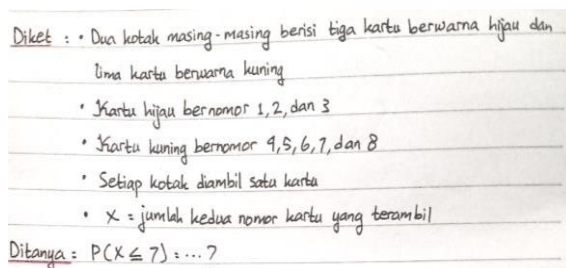 Diket : • Dua kotak masing-masing berisi tiga kartu berwarna hijau dan
lima kartu berwarna kuning
• Kartu hijau bernomor 1, 2, dan 3
• Kartu kuning bernomor 4, 5, 6, 7, dan 8
• Setiap kotak diambil satu kartu
• X = jumlah kedua nomor kartu yang terambil
Ditanya : P(X ≤ 7) = ... ?